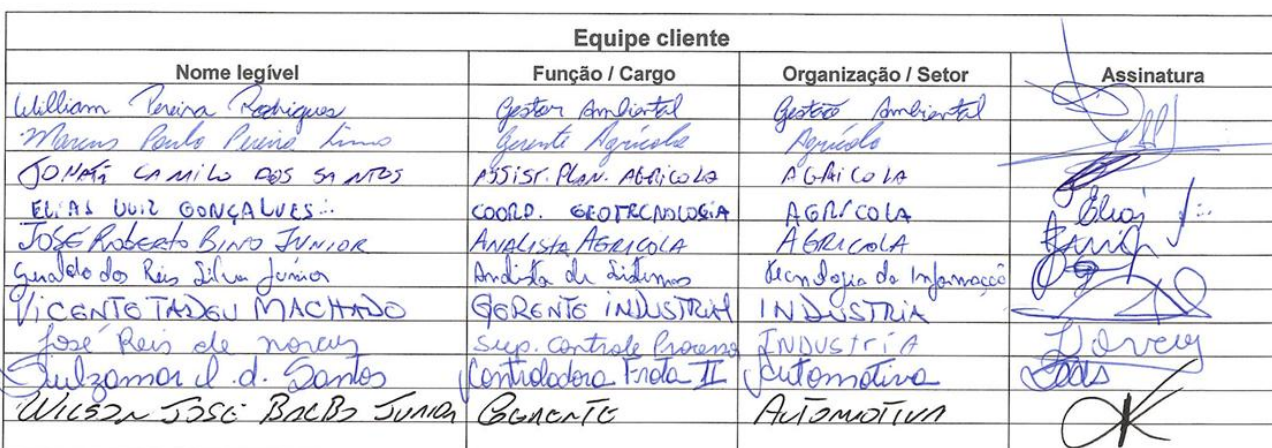 Equipe cliente
Nome legível Função / Cargo Organização / Setor Assinatura
William Pereira Rodrigues Gestor Ambiental Gestão Ambiental
Marcus Paulo Pereira Lima Gerente Agrícola Agrícola
JONATÃ CAMILO DOS SANTOS ASSIST. PLAN. AGRICOLA AGRICOLA
ELIAS LUIZ GONÇALVES COORD. GEOTECNOLOGIA AGRICOLA Elias
JOSÉ ROBERTO BINO JUNIOR ANALISTA AGRICOLA AGRICOLA
Geraldo dos Reis Silva Junior Analista de Sistemas Tecnologia da Informação
VICENTE TADEU MACHADO GERENTE INDUSTRIAL INDUSTRIA
José Reis de Sup. Controle Processo INDUSTRIA
d. Santos Controladora Frota II Automotiva
WILSON JOSÉ JUNIOR GERENTE AUTOMOTIVA